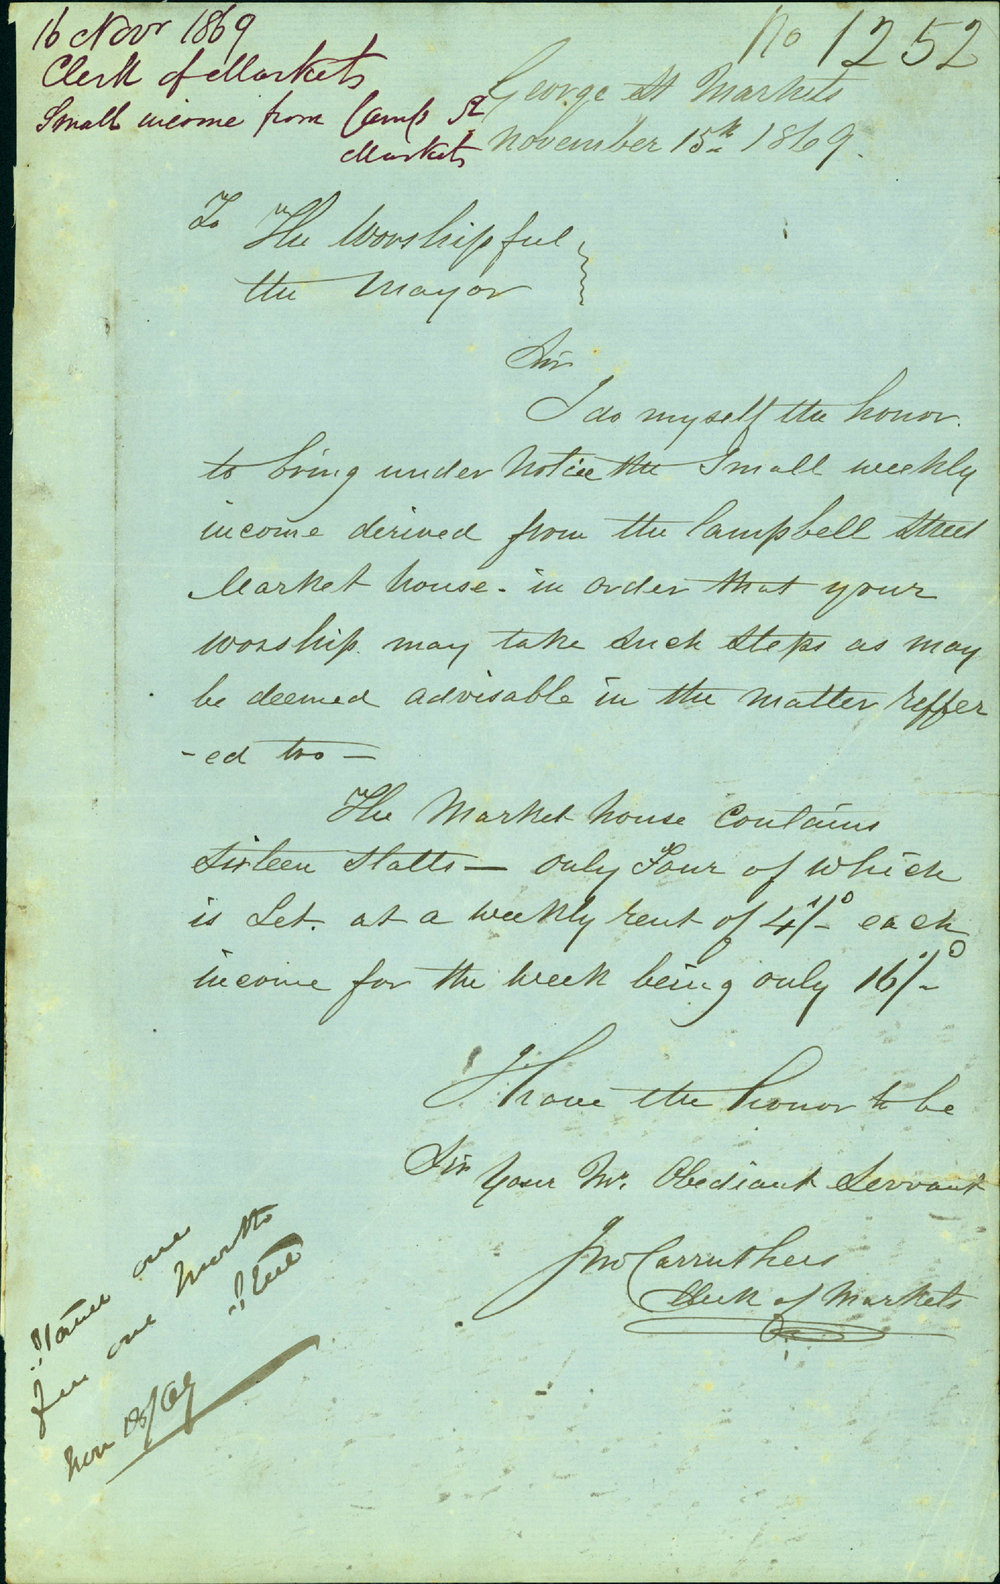 16 Novr 1869
Clerk of Markets
Small income from Camp St
Markets
No 1252
George St Markets
November 15th 1869.
To The Worshipful
the Mayor
Sir
I do myself the honor.
to bring under notice the Small weekly
income derived from the Campbell Street
Market house - in order that your
worship. may take such steps as may
be deemed advisable in the matter reffer
-ed too -
The Market house contains
sixteen stalls - only Four of which
is Let. at a weekly rent of 4s/-0 each
income for the week being only 16s/-0
I have the honor to be
Sir
Your Mt. Obediant Servant
Jno Carruthers
Clerk of Markets
over
for one month
Nov 18/69